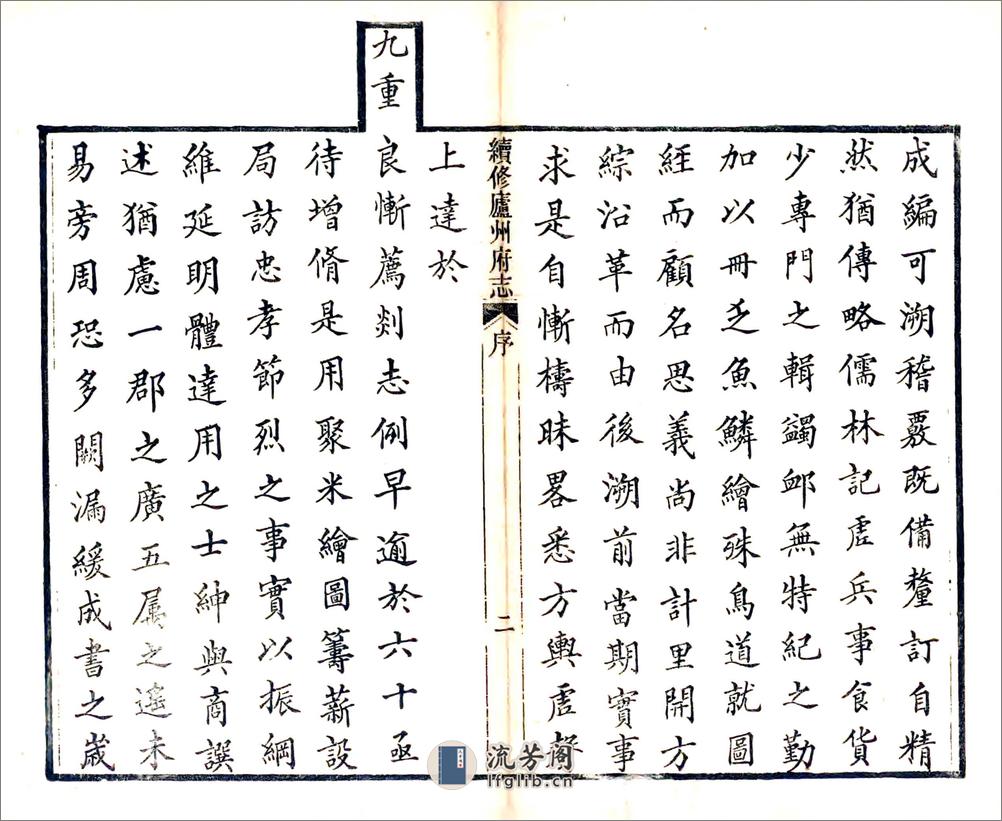 成編可溯稽覈既備釐訂自精
然猶傳略儒林記虗兵事食貨
少專門之輯蠲䘏無特紀之勤
加以冊乏魚鱗繪殊鳥道就圖
經而顧名思義尚非計里開方
綜沿革而由後溯前當期實事
求是自慚檮昧畧悉方輿虗
續修廬州府志 序 二
上達於
九重良慚薦剡志例早逾於六十亟
待增脩是用聚米繪圖籌薪設
局訪忠孝節烈之事實以振綱
維延明體達用之士紳與商譔
述猶慮一郡之廣五属之遙未
易旁周恐多闕漏緩成書之歲
流芳阁
lfglib.cn